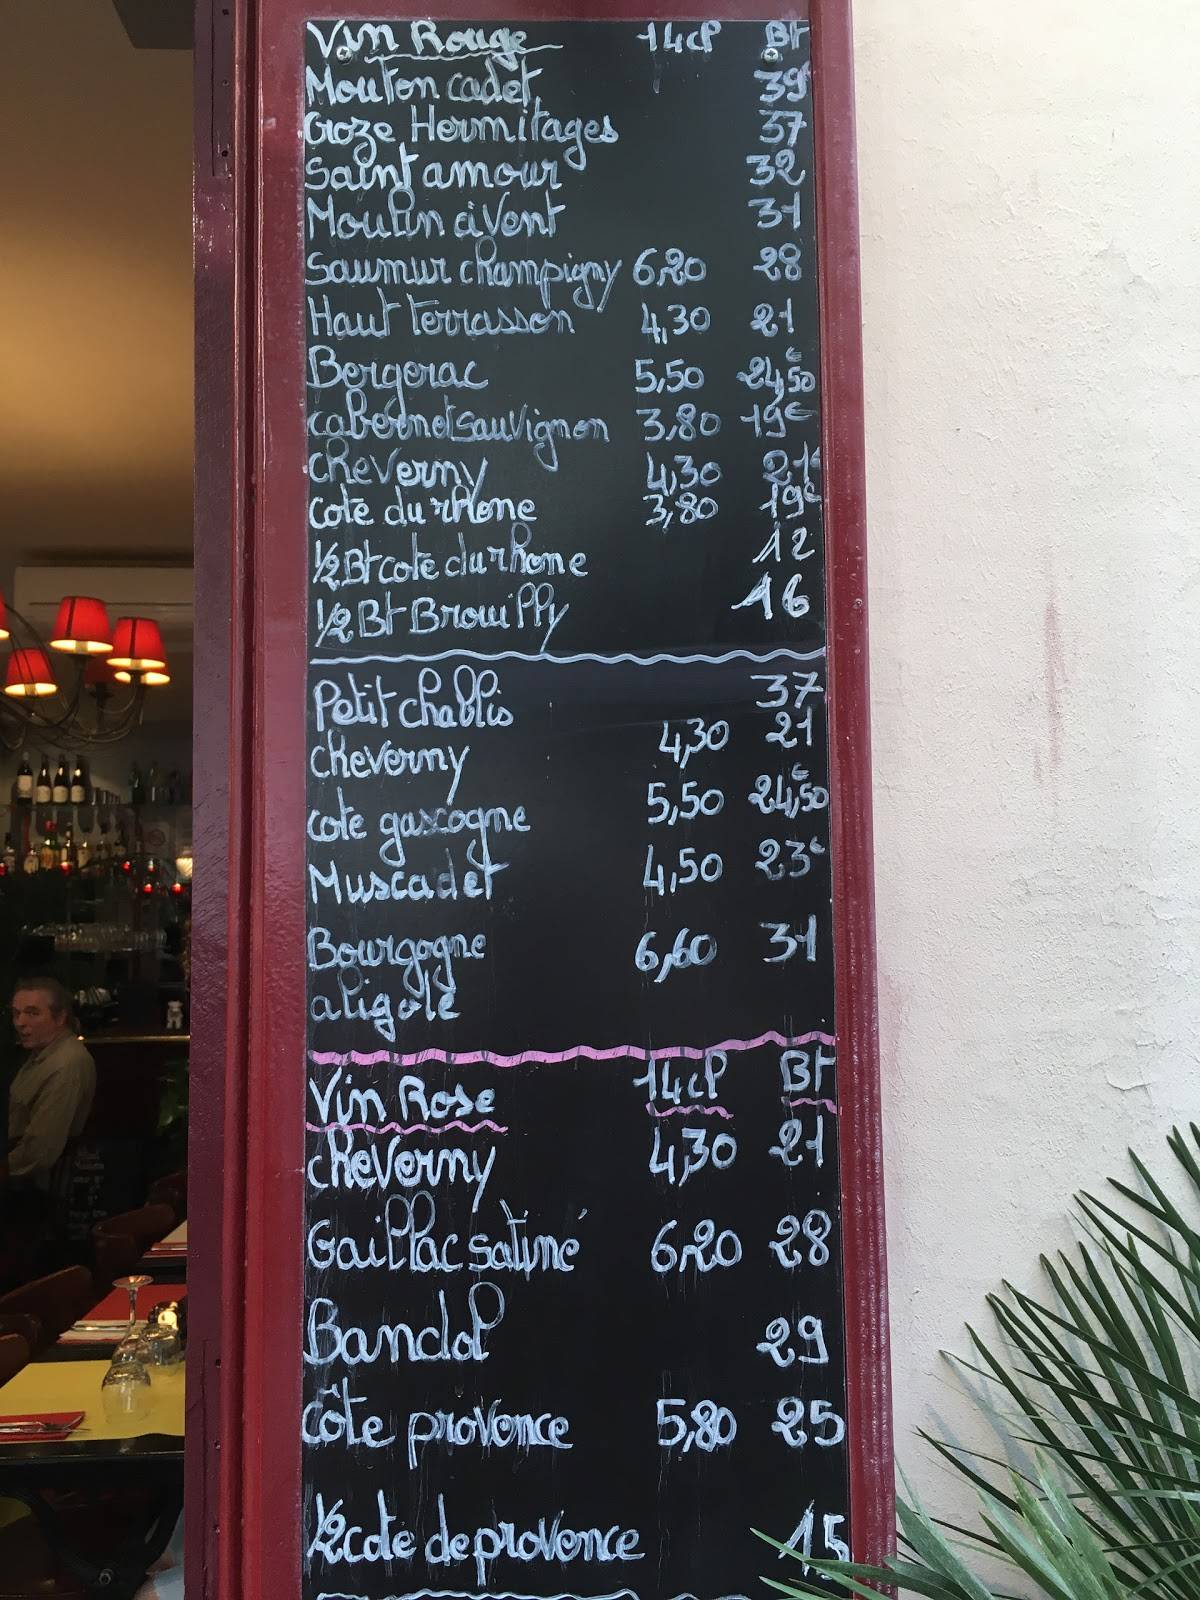 Vin Rouge 14cl Bt
Mouton cadet 39€
Croze Hermitages 37
Saint amour 32
Moulin à Vent 31
Saumur champigny 6,20 28
Haut Terrasson 4,30 21
Bergerac 5,50 24,50€
cabernet sauvignon 3,80 19€
cheverny 4,30 21€
cote du rhone 3,80 19€
1/2 Bt cote du rhone 12
1/2 Bt Brouilly 16
Petit chablis 37
cheverny 4,30 21
cote gascogne 5,50 24,50€
Muscadet 4,50 23€
Bourgogne 6,60 31
aligoté
Vin Rose 14cl Bt
cheverny 4,30 21
Gaillac satiné 6,20 28
Bandol 29
Côte provence 5,80 25
1/2 cote de provence 15